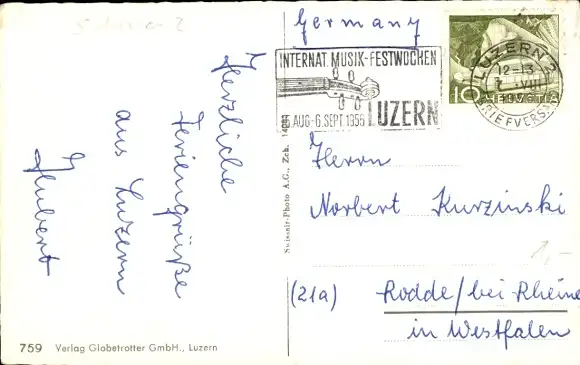 Germany
INTERNAT. MUSIK-FESTWOCHEN
AUG-6.SEPT.1956 LUZERN
LUZERN 2
12-13
VIII
BRIEFVERS
10
HELVETIA
Herzliche
Feriengrüße
aus Luzern
Hubert
Herrn
Norbert Kurzinski
1,-
(21a) Rodde/bei Rheine
in Westfalen
Swissair-Photo A.G., Zch.
759 Verlag Globetrotter GmbH., Luzern